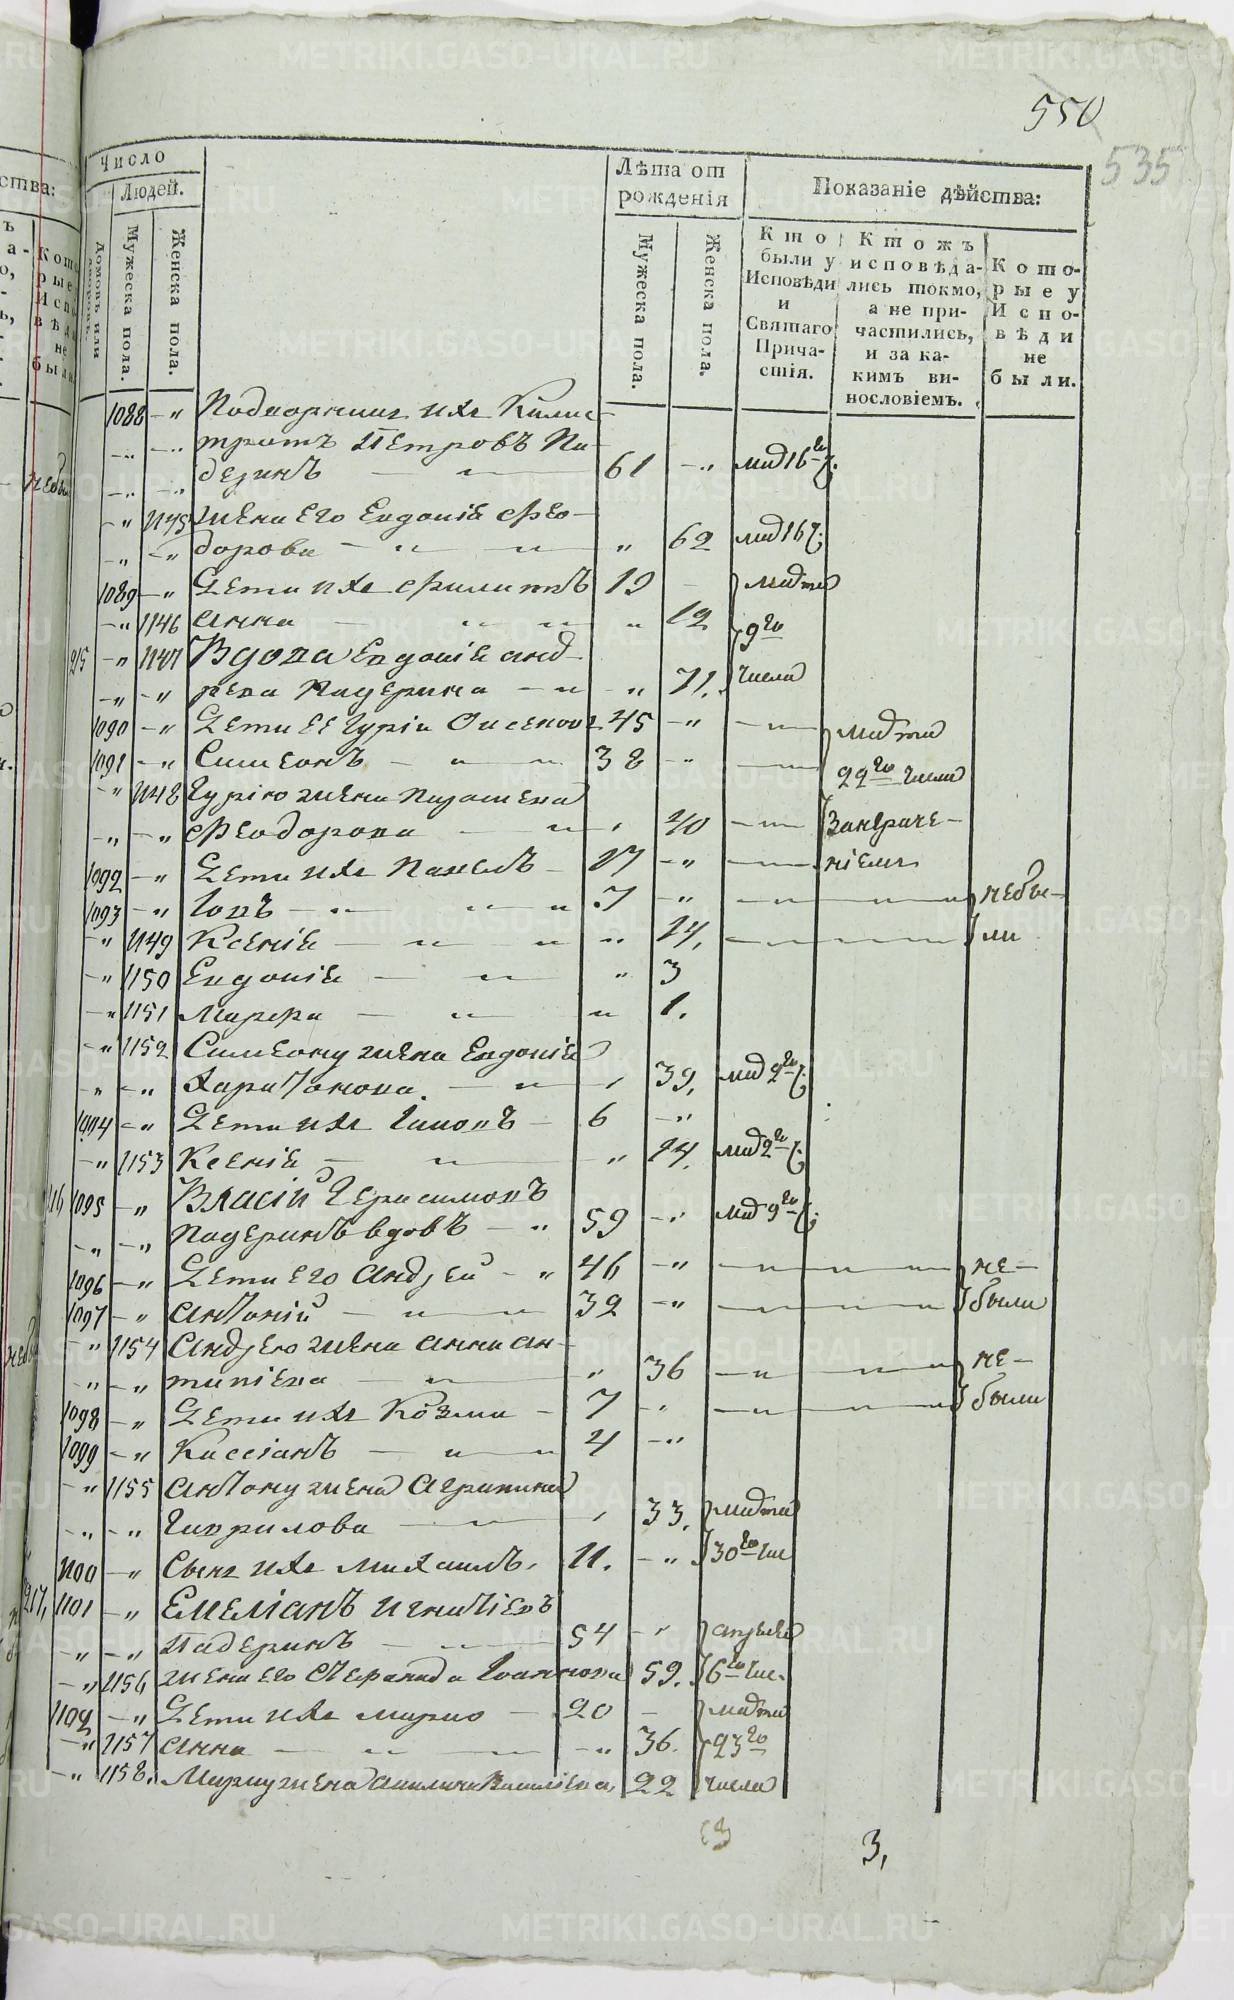 550
535
Число
Людей.
Лѣта от
рожденія
Показаніе дѣйства:
Домовъ или
Мужеска пола.
Женска пола.
Мужеска пола.
Женска пола.
Кто
были у
Исповѣди
и
Святаго
Прича-
стія.
Ктожъ
исповѣда-
лись токмо,
а не при-
частились,
и за ка-
кимъ ви-
нословіемъ.
Кото-
рые у
Испо-
вѣди
не
были.
1088 -„ Подворникъ ихъ Калис-
-„ -„ тратъ Петровъ Па-
-„ -„ деринъ — „ — 61 -„ мая 16го ч.
-„ 1145 жена его Евдокія Ѳео-
-„ -„ дорова — „ — „ 62 мая 16 ч.
1089 -„ Дети ихъ Филиппъ 19 - марта
-„ 1146 Анна — „ — „ 12 9го
215 -„ 1147 Вдова Евдокія Анд-
-„ -„ реева Падерина — „ -„ 71. числа
1090 -„ Дети ее Гурій Оисеновъ 45 -„ — „ — марта
1091 -„ Симеонъ — „ — 38 -„ — „ — 22го числа
-„ 1148 Гурію жена Парасковa
-„ -„ Ѳеодорова — „ — „ 40 — „ — Занераче-
1092 -„ Дети ихъ Павелъ - 17 -„ — „ — ніемъ
1093 -„ Іовъ — „ — „ 7 -„ — „ — „ — небы-
-„ 1149 Ксенія — „ — „ „ 14. — „ — „ — ли
-„ 1150 Евдокія — „ — „ 3
-„ 1151 Марфа — „ — „ 1.
-„ 1152 Симеону жена Евдокія
-„ -„ Харитонова. — „ — „ 39. мая 2го ч.
1094 -„ Дети ихъ Іаковъ - 6 -„
-„ 1153 Ксенія — „ — „ 14. мая 2го ч.
216 1095 -„ Власій Герасимовъ
-„ -„ Падеринъ вдовъ — „ 59 -„ мая 9го ч.
1096 -„ Дети его Андрей - „ 46 -„ — „ — „ — не-
1097 -„ Антоній — „ — „ 39 -„ — „ — „ — были
-„ 1154 Андрею жена Анна Ан-
-„ -„ типіева — „ — „ 36 — „ — „ — не-
1098 -„ Дети ихъ Козма - 7 -„ — „ — „ — были
1099 -„ Кассіанъ — „ — „ 4 -„
-„ 1155 Антону жена Агрипина
-„ -„ Гаврилова — „ — „ 33. марта
1100 -„ Сынъ ихъ Михаилъ. 11. -„ 30го чис
217, 1101 -„ Емеліанъ Игнатіевъ
-„ -„ Падеринъ — „ — 54 -„ апреля
-„ 1156 жена его Стефанида Іоаннова 59. 6го чис.
1102 -„ Дети ихъ Марко — 20 - марта
-„ 1157 Анна — „ — „ -„ 36. 23го
-„ 1158. Марку жена Акилина Василіева, 22 числа
3,